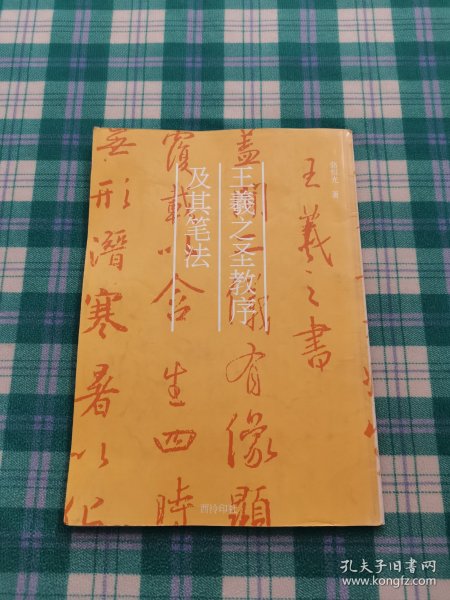 王羲之圣教序
及其笔法
王羲之書
蓋聞二儀有像顯
覆載以含生四時
無形潛寒暑以化
西泠印社
孔夫子旧书网
www.kongfz.com